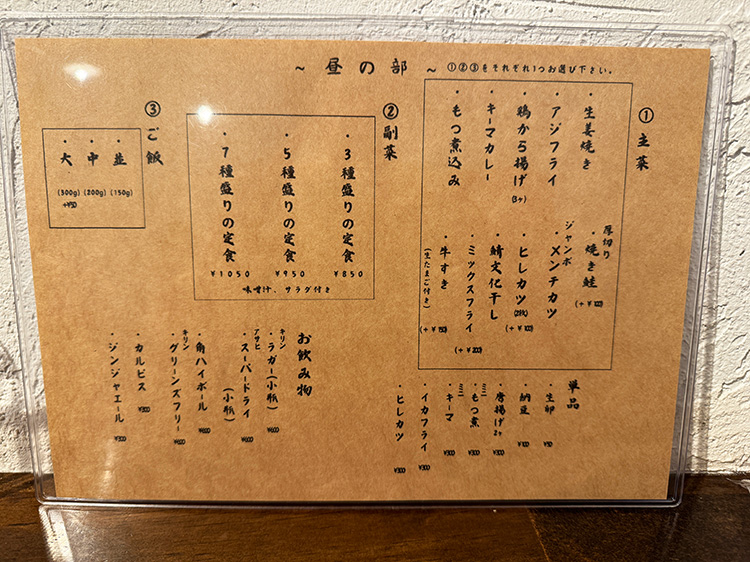 ～ 昼の部 ～
①②③をそれぞれ1つお選び下さい。
① 主菜
・生姜焼き
・アジフライ
・鶏から揚げ(3ヶ)
・キーマカレー
・もつ煮込み
厚切り
・焼き鮭
(+ ¥100)
ジャンボ
・メンチカツ
・ヒレカツ(2枚)
(+ ¥100)
・鯖文化干し
・ミックスフライ
(+ ¥200)
・牛すき
(生たまご付き)
(+ ¥150)
② 副菜
・3種盛りの定食
¥850
・5種盛りの定食
¥950
・7種盛りの定食
¥1050
味噌汁、サラダ付き
③ ご飯
・並
(150g)
・中
(200g)
・大
(300g)
+¥50
単品
・生卵 ¥50
・納豆 ¥100
・唐揚げ2ヶ ¥300
ミニ
・もつ煮 ¥300
ミニ
・キーマ ¥300
・イカフライ ¥300
・ヒレカツ ¥300
お飲み物
キリン
・ラガー(小瓶) ¥600
アサヒ
・スーパードライ(小瓶) ¥600
・角ハイボール ¥600
キリン
・グリーンズフリー ¥600
・カルピス ¥300
・ジンジャエール ¥300